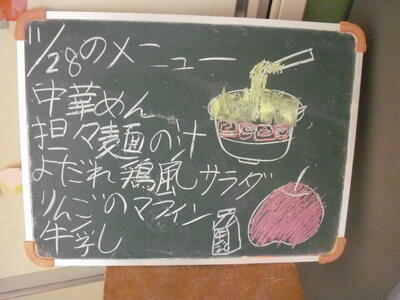 11/28のメニュー
中華めん
担々麺の汁
よだれ鶏風サラダ
りんごのマフィン
牛乳